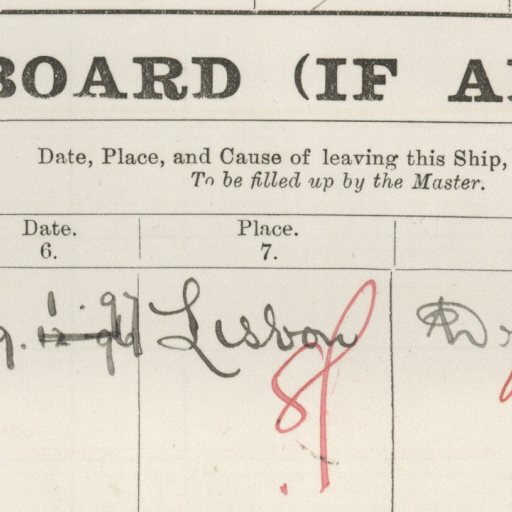 BOARD (IF A
Date, Place, and Cause of leaving this Ship,
To be filled up by the Master.
Date. Place.
6. 7.
9. 1. 97 Lisbon